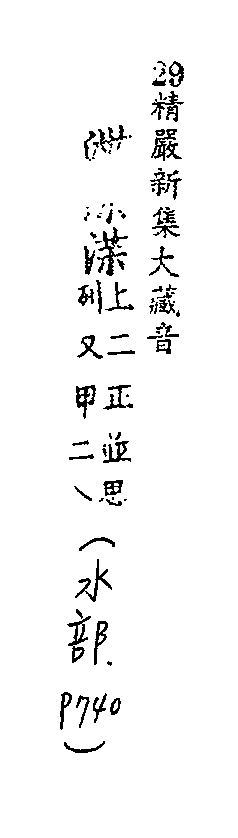 29精嚴新集大藏音
渫
上二正並思
列又甲二丶
(水部.P740)